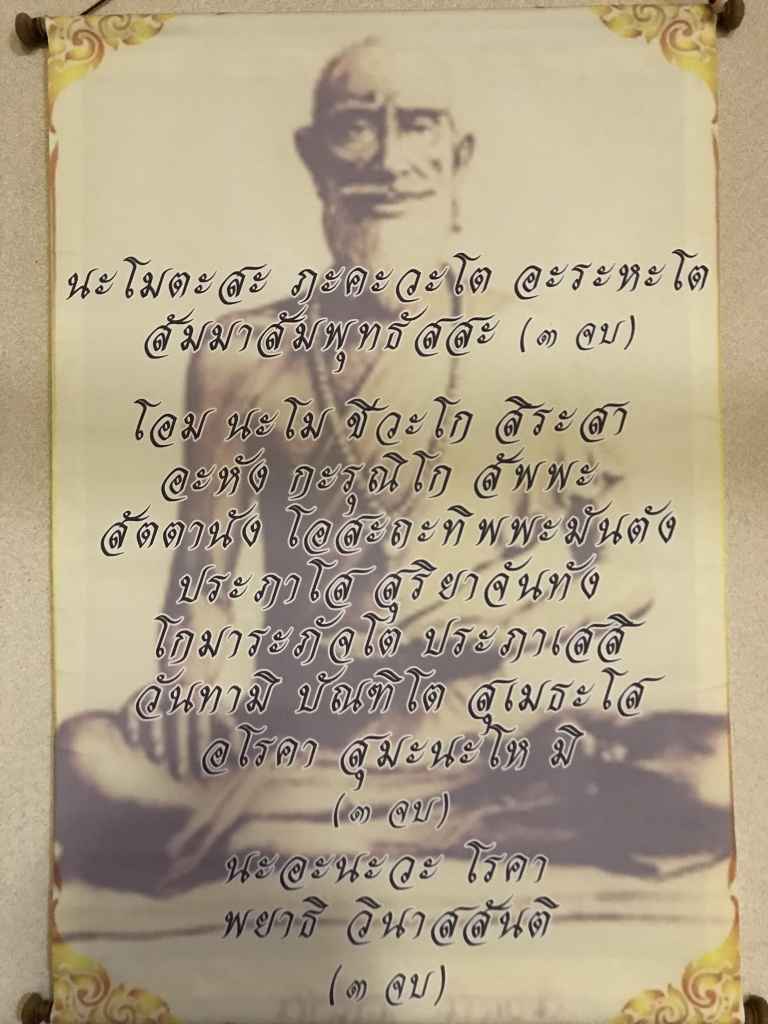 นะโมตะสะ ภะคะวะโต อะระหะโต
สัมมาสัมพุทธัสสะ (๓ จบ)
โอม นะโม ชีวะโก สิระสา
อะหัง กะรุณิโก สัพพะ
สัตตานัง โอสะถะทิพพะมันตัง
ประภาโส สุริยาจันทัง
โกมาระภัจโต ประภาเสสิ
วันทามิ บัณฑิโต สุเมธะโส
อโรคา สุมะนะโห มิ
(๓ จบ)
นะอะนะวะ โรคา
พยาธิ วินาสสันติ
(๓ จบ)